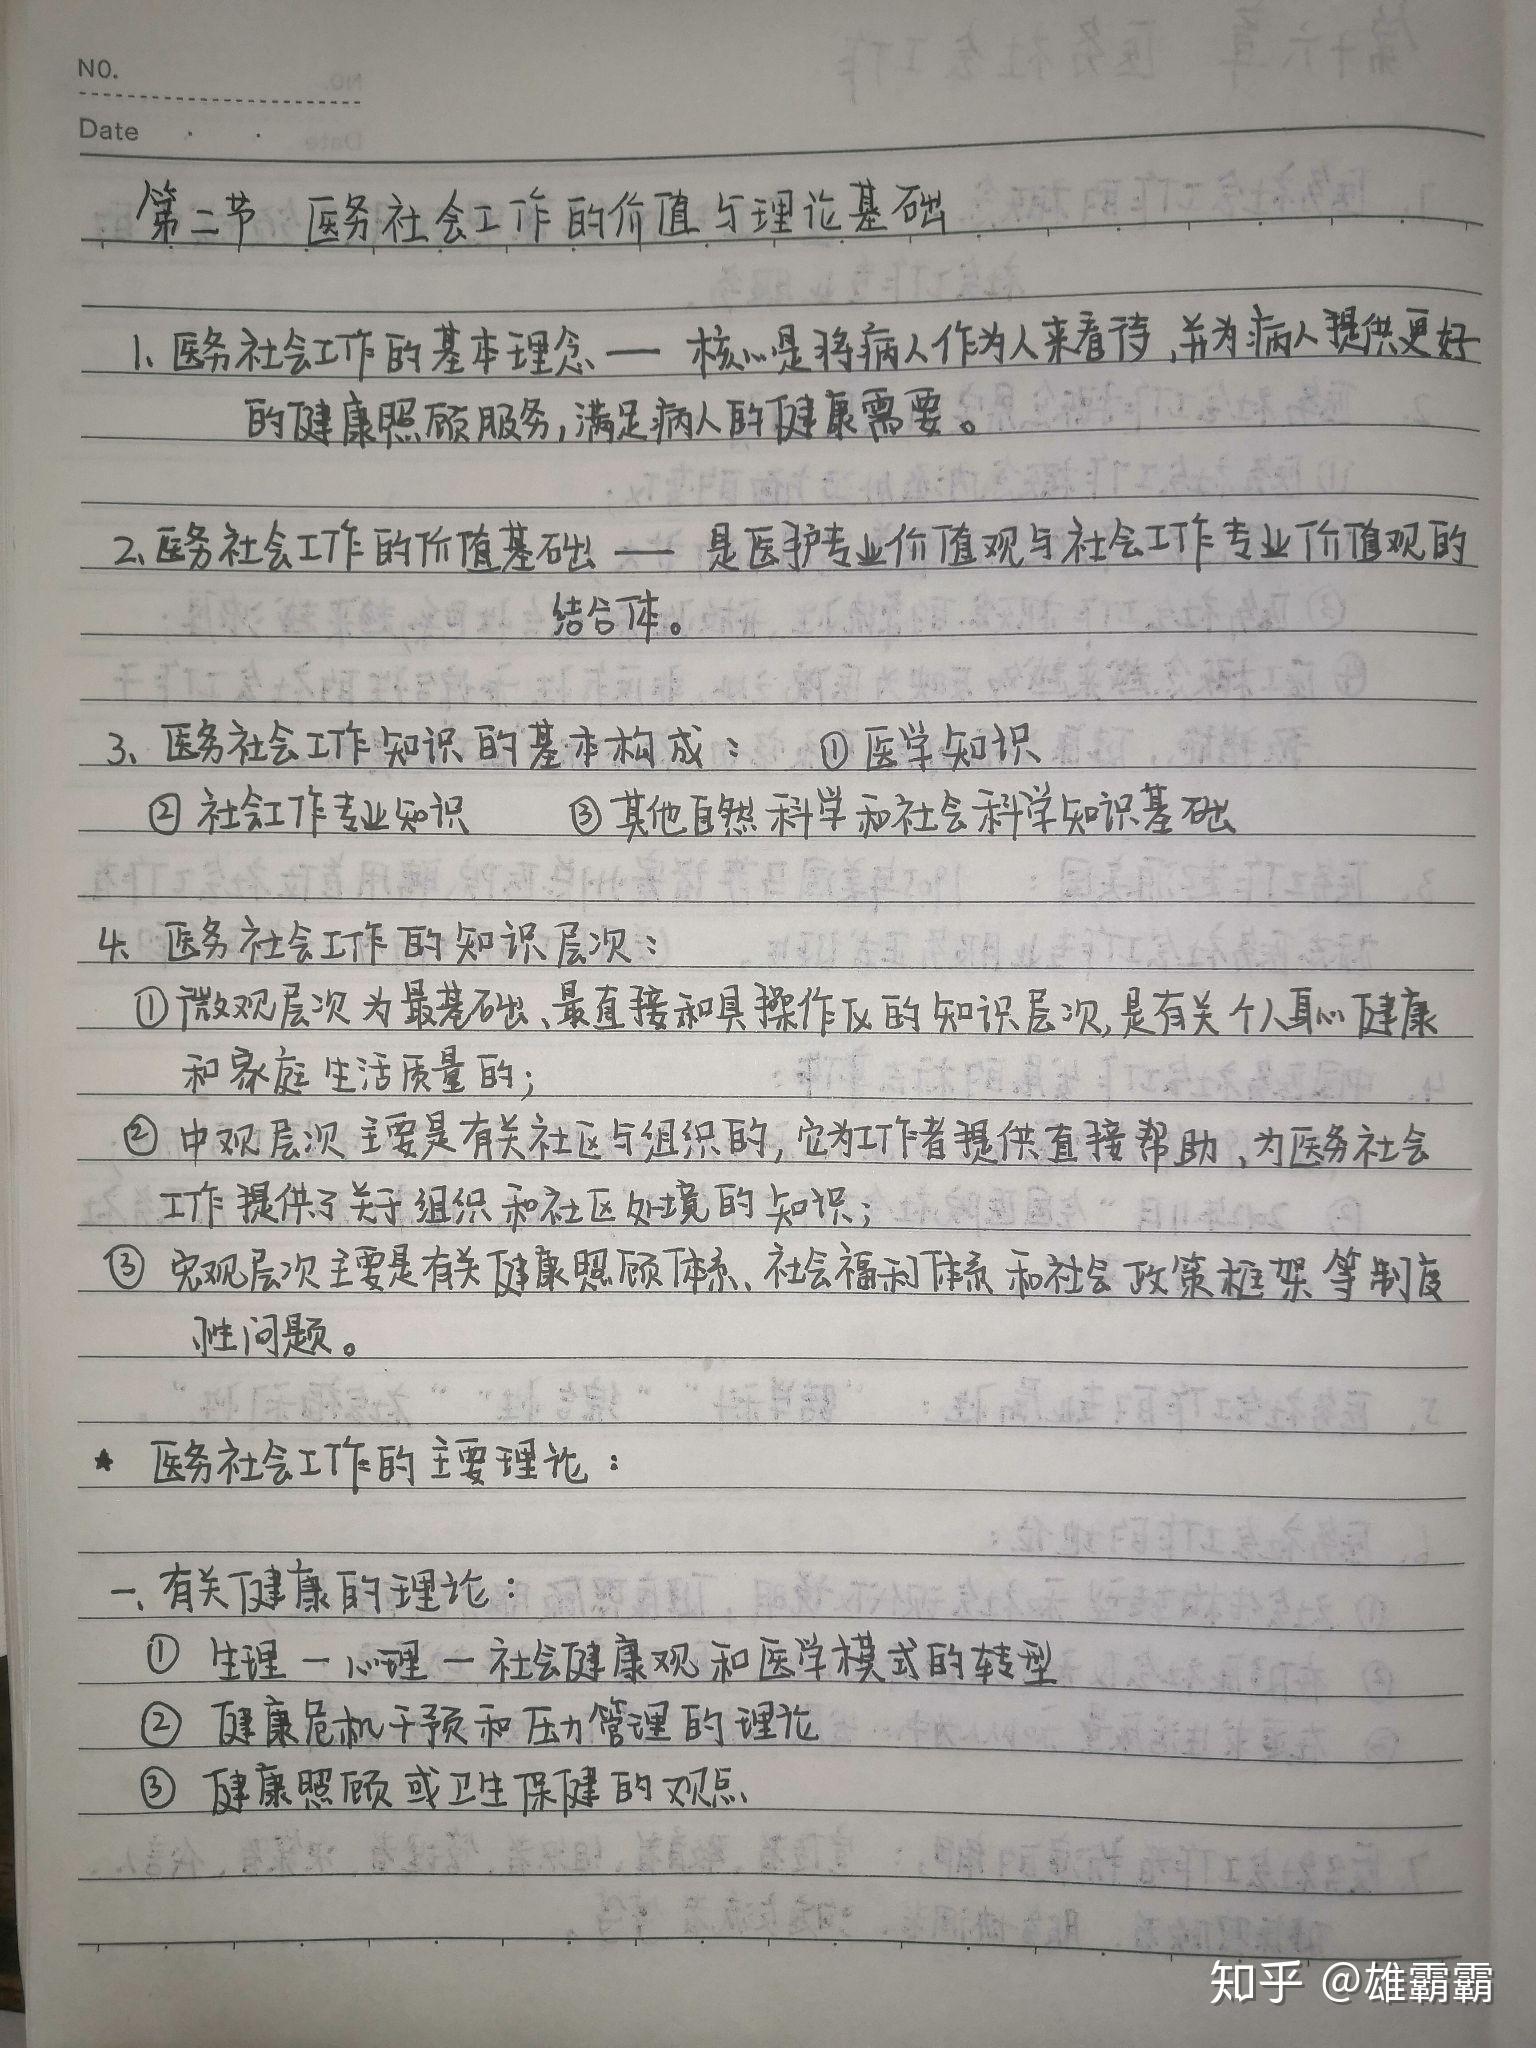 NO.
Date
第二节 医务社会工作的价值与理论基础
1、医务社会工作的基本理念 — 核心是将病人作为人来看待,并为病人提供更好
的健康照顾服务,满足病人的健康需要。
2、医务社会工作的价值基础 — 是医护专业价值观与社会工作专业价值观的
结合体。
3、医务社会工作知识的基本构成: ①医学知识
②社会工作专业知识 ③其他自然科学和社会科学知识基础
4、医务社会工作的知识层次:
①微观层次为最基础、最直接和具操作仪的知识层次,是有关个人身心健康
和家庭生活质量的;
②中观层次主要是有关社区与组织的,它为工作者提供直接帮助,为医务社会
工作提供了关于组织和社区处境的知识;
③宏观层次主要是有关健康照顾体系、社会福利体系和社会政策框架等制度
性问题。
★ 医务社会工作的主要理论:
一、有关健康的理论:
① 生理 — 心理 — 社会健康观和医学模式的转型
② 健康危机干预和压力管理的理论
③ 健康照顾或卫生保健的观点
知乎 @雄霸霸